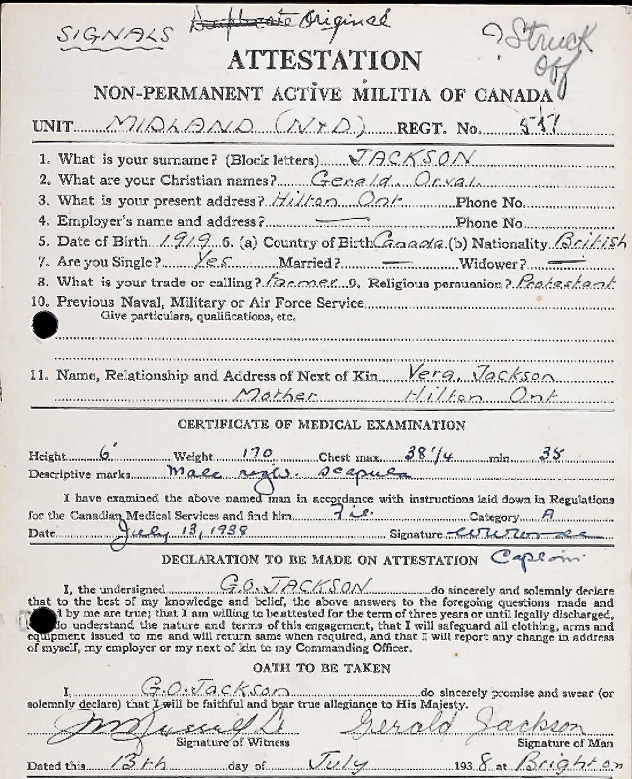 SIGNALS Duplicate Original
Struck
Off
ATTESTATION
NON-PERMANENT ACTIVE MILITIA OF CANADA
UNIT MIDLAND (N+D) REGT. No. 551
1. What is your surname? (Block letters) JACKSON
2. What are your Christian names? Gerald Orval
3. What is your present address? Hilton Ont Phone No.
4. Employer's name and address? — Phone No.
5. Date of Birth 1919 6. (a) Country of Birth Canada (b) Nationality British
7. Are you Single? Yes Married? — Widower? —
8. What is your trade or calling? Farmer 9. Religious persuasion? Protestant
10. Previous Naval, Military or Air Force Service
Give particulars, qualifications, etc.
11. Name, Relationship and Address of Next of Kin Vera Jackson
Mother Hilton Ont
CERTIFICATE OF MEDICAL EXAMINATION
Height 6' Weight 170 Chest max. 38 1/4 min 35
Descriptive marks Mole right scapula
I have examined the above named man in accordance with instructions laid down in Regulations
for the Canadian Medical Services and find him Fit Category A
Date July 13, 1938 Signature
Captain
DECLARATION TO BE MADE ON ATTESTATION
I, the undersigned G.O. JACKSON do sincerely and solemnly declare
that to the best of my knowledge and belief, the above answers to the foregoing questions made and
by me are true; that I am willing to be attested for the term of three years or until legally discharged,
do understand the nature and terms of this engagement, that I will safeguard all clothing, arms and
equipment issued to me and will return same when required, and that I will report any change in address
of myself, my employer or my next of kin to my Commanding Officer.
OATH TO BE TAKEN
I, G.O. Jackson do sincerely promise and swear (or
solemnly declare) that I will be faithful and bear true allegiance to His Majesty.
Gerald Jackson
Signature of Witness Signature of Man
Dated this 13th day of July 1938 at Brighton